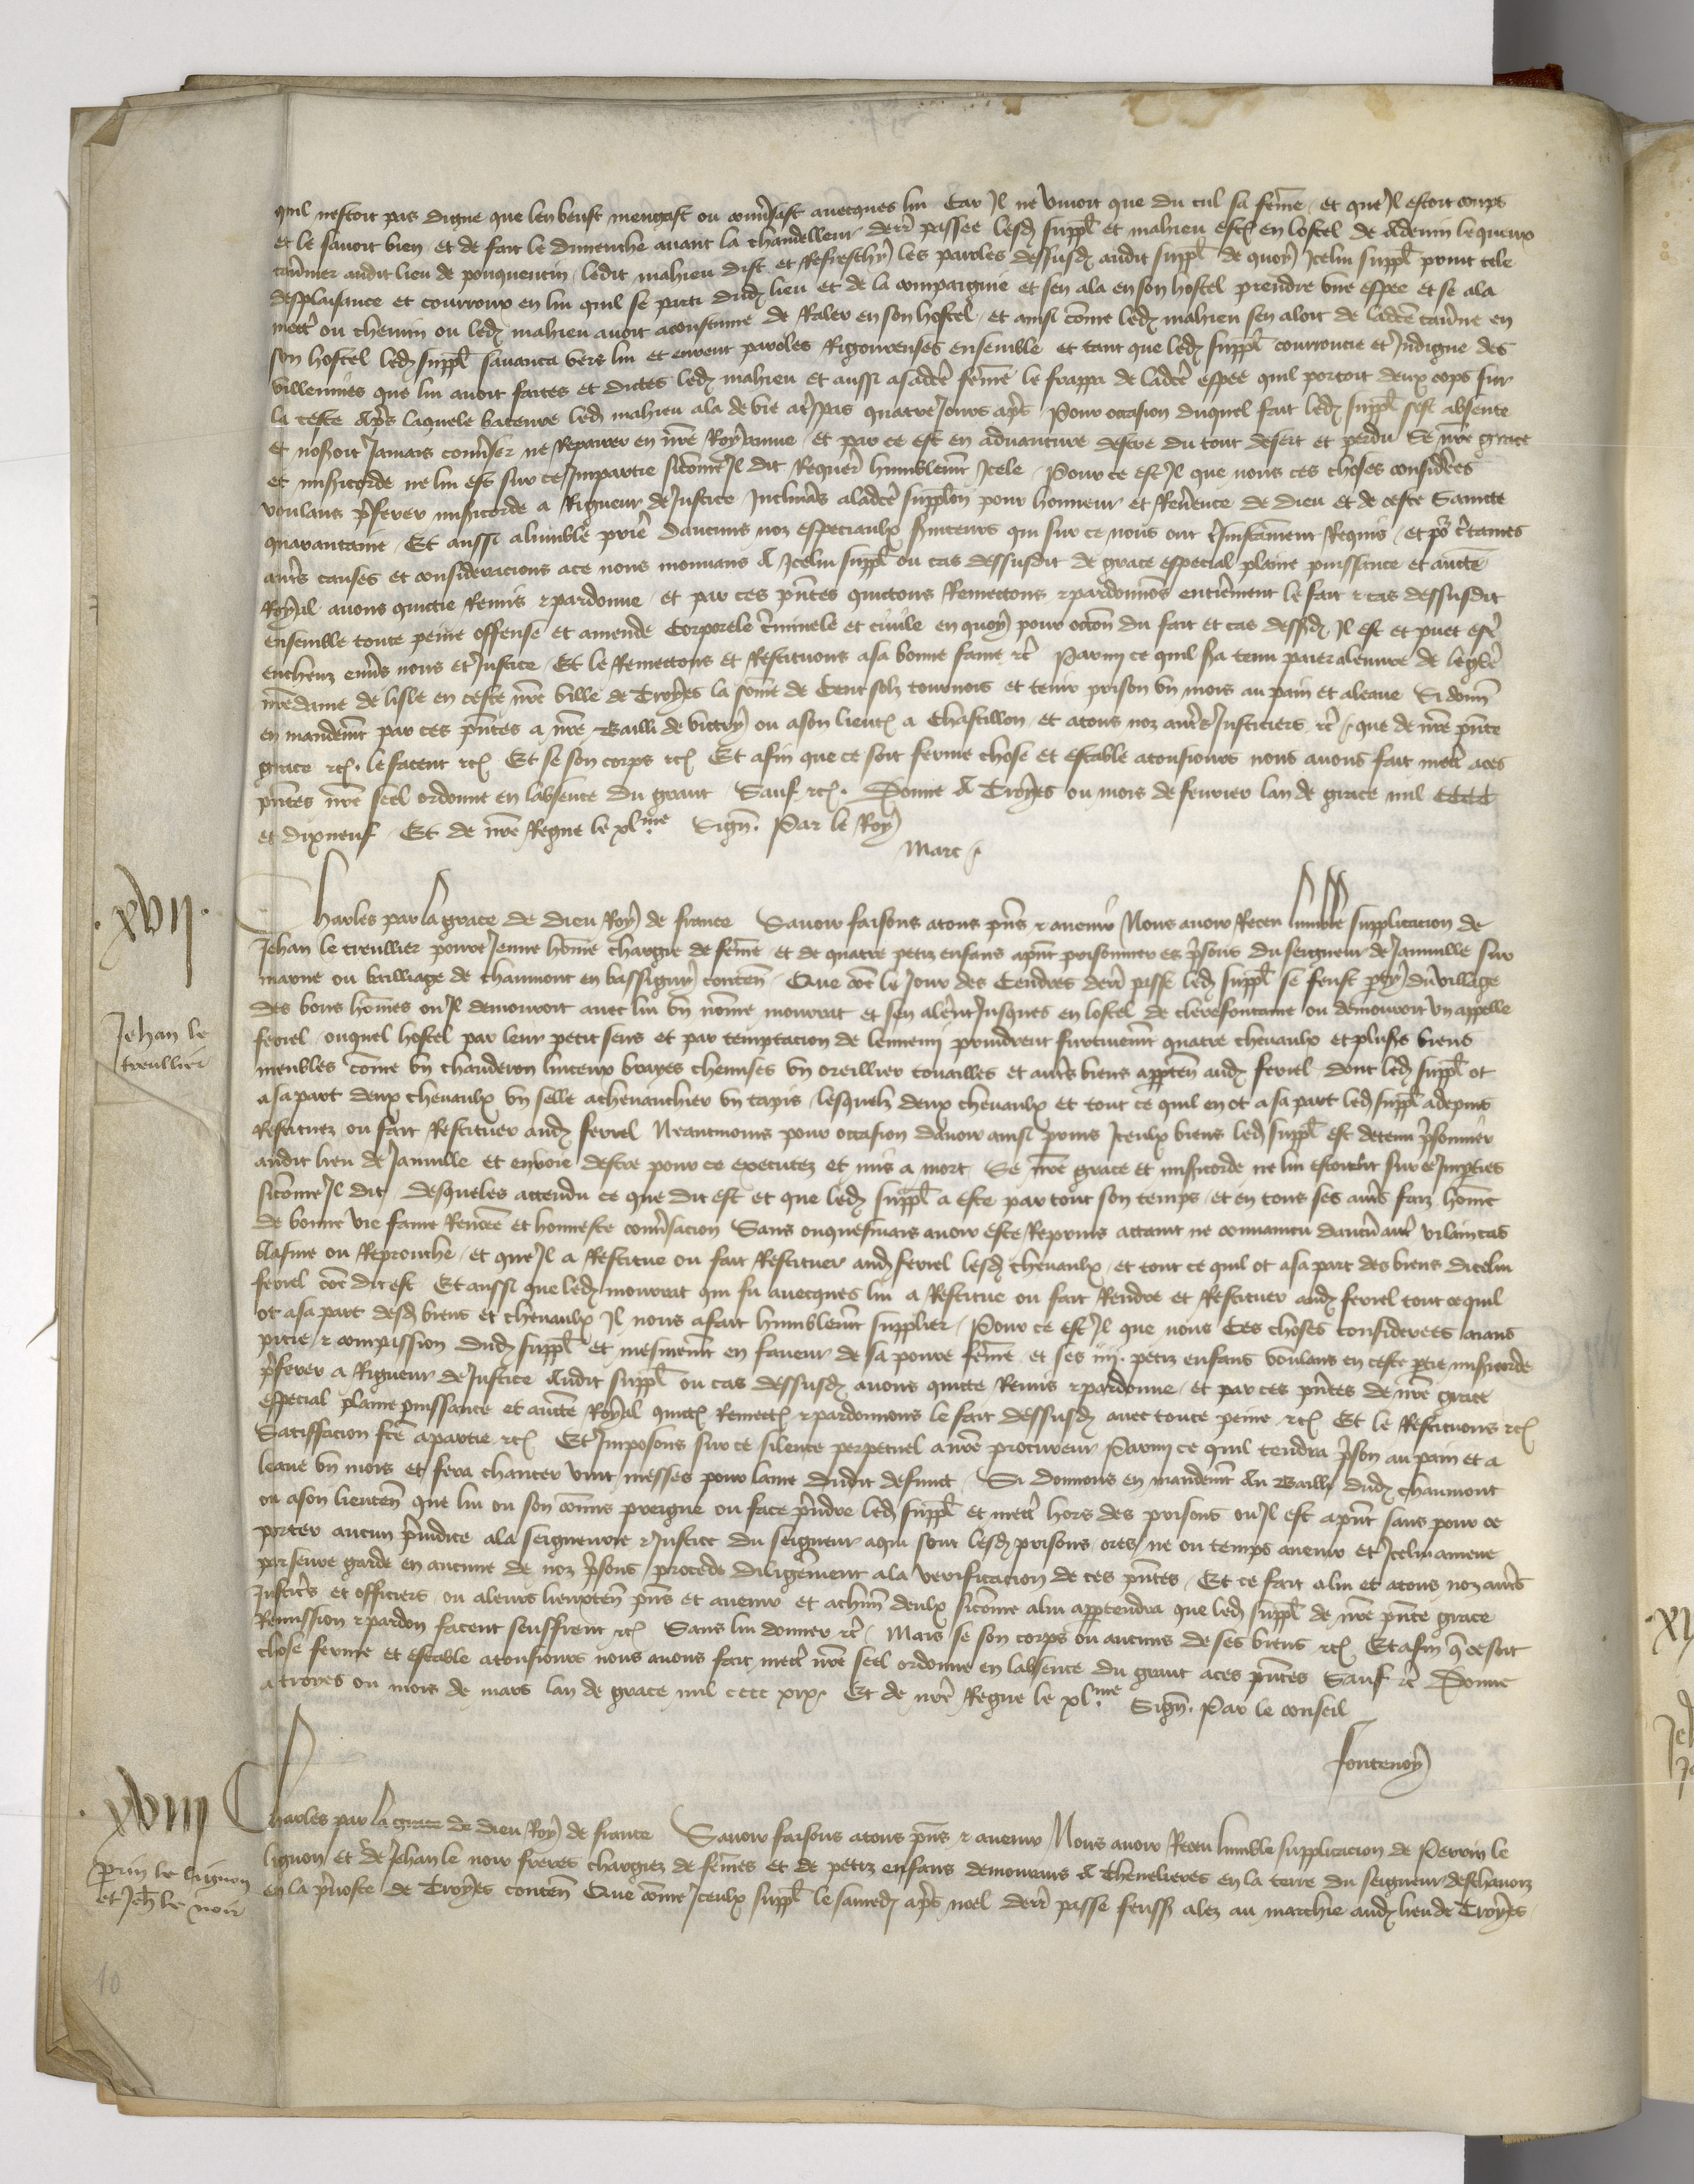 quil nestoit pas digne que len beust mengast ou conv̄sast avecques lui Car Il ne vivoit que du cul sa fēme et quil estoit coups
et le savoit bien et de fait le dimenche avant la chandelleur derr̄ passee lesd suppl̄ et mahieu estoient en lostel de Adenin lequeux
tav̄nier audit lieu de pouquentin ledit mahieu dist et Refreschy les paroles dessusd audit suppl̄ de quoy Icelui suppl̄ print tele
desplaisance et courroux en lui quil se parti dud lieu et de la compaignie et sen ala en son hostel prendre une espee et se ala
mectr̄ ou chemin ou led mahieu avoit acoustume de Raler en son hostel et ainsi cōme led mahieu sen aloit de lad tav̄ne en
son hostel led suppl̄ savanca vers lui et eurent paroles Rigoureuses ensemble et tant que led suppl̄ courroucie et Indigne des
villennies que lui avoit faites et dictes led mahieu et aussi asadc̄e fēme le frappa de ladc̄e espee quil portoit deux cops sur
la teste Ap̄s laquele bateure led mahieu ala de vie a tr̄spas quatre Jours ap̄s Pour occasion duquel fait led suppl̄ sest absente
et noseroit Jamais conv̄ser ne Repairer en nr̄e Royaume et par ce est en adventure destre du tout desert et perdu Se nr̄e grace
et miscorde ne lui est sur ce Impartie sicōme Il dit Requer̄ humblem̄t Icele Pour ce est Il que nous ces choses considerees
voulans p̄ferer miscorde a Rigueur de Justice Inclinās aladc̄e supplōn pour honneur et Rev̄ence de dieu et de ceste Saincte
quarantaine Et aussi alumble prie daucuns noz especiaulx serviteurs qui sur ce nous ont Instāment Requis et po c̄taines
autr̄s causes et consideracions ace nous mouvans A Icelui suppl̄ ou cas dessusdit de grace especial plaine puissance et aucte
Royal avons quictie Remis & pardonne et par ces pn̄tes quictons Remectons & pardonnōs entier̄ment le fait & cas dessusdit
ensemble toute peine offense et amende Corporele c̄minele et civile en quoy pour occōn du fait et cas dessusd Il est et puet estr̄
encheuz env̄s nous et Justice Et le Remectons et Restituons asa bonne fame &c̄ Parmi ce quil sera tenu paier aleuvre de legl̄e
nr̄edame de lisle en ceste nr̄e ville de Troyes la sōme de Cent solz tournois et tenir prison un mois au pain et aleaue Si donn̄
en mandem̄t par ces pn̄tes a nr̄e Bailli de victry ou ason lieut a Chastillon et atous noz autr̄s Justiciers &c̄ que de nr̄e pn̄te
grace &c. le facent &c Et se son corps &c Et afin que ce soit ferme chose et estable atousiours nous avons fait mectr̄ aces
pn̄tes nr̄e seel ordonne en labsence du grant Sauf &c. Donne A Troyes ou mois de fevrier lan de grace mil CCCC
et dixneuf Et de nr̄e Regne le xlme Sign̄. Par le Roy
Marc
.xvii.
Charles par la grace de dieu Roy de france Savoir faisons atous pn̄s & avenir Nous avoir Receu lumble supplicacion de
Jehan le treullier povre Jeune hōme chargie de fēme et de quatre petiz enfans apn̄t prisonnier es p̄sons du seigneur de Jainville sur
Jehan le
treullier
marne ou bailliage de chaumont en bassigny conten̄ Que cōe le Jour des Cendres derr̄ passe led suppl̄ se feust party du village
des bons hōmes ou Il demouroit avec lui un nōme mourrat et sen aler̄t Jusques en lostel de clerefontaine ou demouroit un appelle
ferrel ouquel hostel par leur petit sens et par temptacion de lennemi prindrent furtivem̄t quatre chevaulx et plus̄s biens
meubles cōme un chauderon linceux brayes chemises un oreillier touailles et autr̄s biens apparten̄ aud ferrel dont led suppl̄ ot
asa part deux chevaulx un selle achevauchier un tapis lesquelz deux chevaulx et tout ce quil en ot asa part led suppl̄ adepuis
Restituez ou fait Restituer aud ferrel Neantmoins pour occasion davoir ainsi prins Iceulx biens led suppl̄ est detenu p̄sonnier
audit lieu de Jainville et en voie destre pour ce executez et mis a mort Se nr̄e grace et miscorde ne lui estoient sur ce Imp̄ties
sicōme Il dit desqueles attendu ce que dit est et que led suppl̄ a este par tout son temps et en tous ses autr̄s faiz hōme
de bonne vie fame Renōmee et honneste conv̄sacion Sans onquesmais avoir este Reprins attaint ne convaincu daucun autr̄ vilain cas
blasme ou Reprouche et quil a Restitue ou fait Restituer aud ferrel lesd chevaulx et tout ce quil ot asa part des biens dicelui
ferrel cōe dit est Et aussi que led mourrat qui fu avecques lui a Restitue ou fait Rendre et Restituer aud ferrel tout ce quil
ot asa part desd biens et chevaulx Il nous afait humblem̄t supplier Pour ce est Il que nous Ces choses considerees aians
pitie & compassion dud suppl̄ et mesmem̄t en faveur de sa povre fēme et ses iiii. petiz enfans voulans en ceste p̄tie miscorde
p̄ferer a Rigueur de Justice Audit suppl̄ ou cas dessusd avons quicte Remis & pardonne et par ces pn̄tes de nr̄e grace
especial plaine puissance et aucte Royal quict Remect & pardonnons le fait dessusd avec toute peine &c Et le Restituons &c
Satisfacion fc̄e apartie &c Et Imposons sur ce silence perpetuel a nr̄e procureur Parmi ce quil tendra p̄son au pain et a
leaue un mois et fera chanter vint messes pour lame dudit defunct Si donnons en mandem̄t Au Bailli dud chaumont
ou ason lieuten̄ que lui ou son cōmis preigne ou face p̄ndre led suppl̄ et mectr̄ hors des prisons ou Il est apn̄t sans pour ce
porter aucun p̄iudice ala seigneurie & Justice du seigneur aqui sont lesd prisons ores ne ou temps avenir et Icelui amene
par seure garde en aucune de noz p̄sons procede diligēment ala verificacion de ces pn̄tes Et ce fait alui et atous noz autr̄s
Justic̄s et officiers ou aleurs lieuxten̄ pn̄s et avenir et achūn deulx sicōme alui appartendra que led suppl̄ de nr̄e pn̄te grace
Remission & pardon facent seuffrent &c Sans lui donner &c̄ Mais se son corps ou aucuns de ses biens &c Et afin q̄ ce soit
chose ferme et estable atousiours nous avons fait mectr̄ nr̄e seel ordonne en labsence du grant aces pn̄tes Sauf &c̄ Donne
a troyes ou mois de mars lan de grace mil cccc xix. Et de nr̄e Regne le xl.me Sign̄. Par le conseil
fontenoy
.xviii
Charles par la grace de dieu Roy de france Savoir faisons atous pn̄s & avenir Nous avoir Receu lumble supplicacion de Perrin le
p̄rin le lignon
et Jeh̄ le noir
lignon et de Jehan le noir freres chargiez de fēmes et de petiz enfans demourans A Thenelieres en la terre du seigneur deschavoiz
en la p̄voste de Troyes conten̄ Que cōme Iceulx suppl̄ le samedi ap̄s noel derr̄ passe feussent alez au marchie aud lieu de Troyes
10